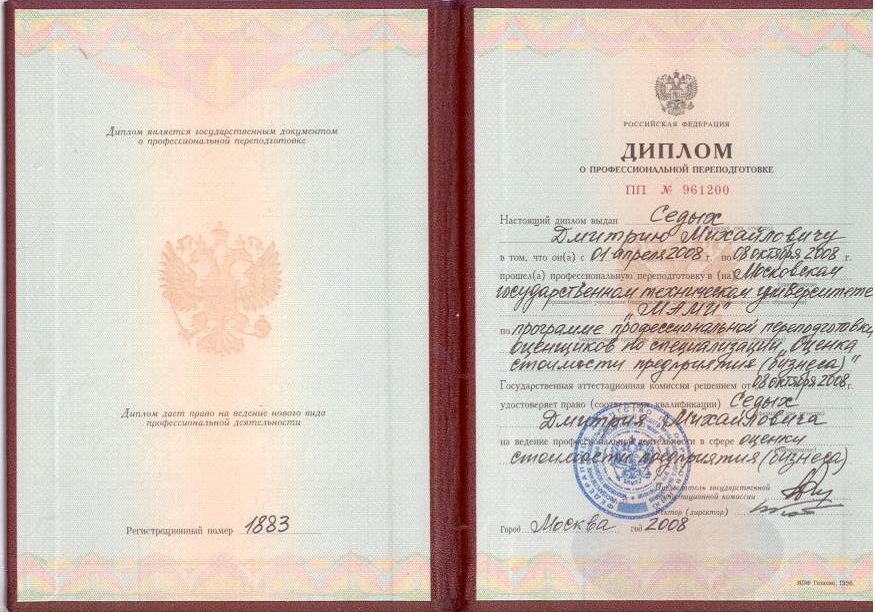 Диплом является государственным документом
о профессиональной переподготовке
Диплом дает право на ведение нового вида
профессиональной деятельности
Регистрационный номер 1883
РОССИЙСКАЯ ФЕДЕРАЦИЯ
ДИПЛОМ
О ПРОФЕССИОНАЛЬНОЙ ПЕРЕПОДГОТОВКЕ
ПП № 961200
Настоящий диплом выдан Седых
Дмитрию Михайловичу
в том, что он(а) с 01 апреля 2008 г. по 08 октября 2008 г.
прошел(а) профессиональную переподготовку в (на) Московском
государственном техническом университете
"МАМИ"
по программе "профессиональной переподготовки
оценщиков по специализации "Оценка
стоимости предприятия (бизнеса)"
Государственная аттестационная комиссия решением от 08 октября 2008 г.
удостоверяет право (соответствие квалификации) Седых
Дмитрия Михайловича
на ведение профессиональной деятельности в сфере оценки
стоимости предприятия (бизнеса)
Председатель государственной
аттестационной комиссии
Ректор (директор)
Город Москва год 2008
МПФ Гознака. 1996.